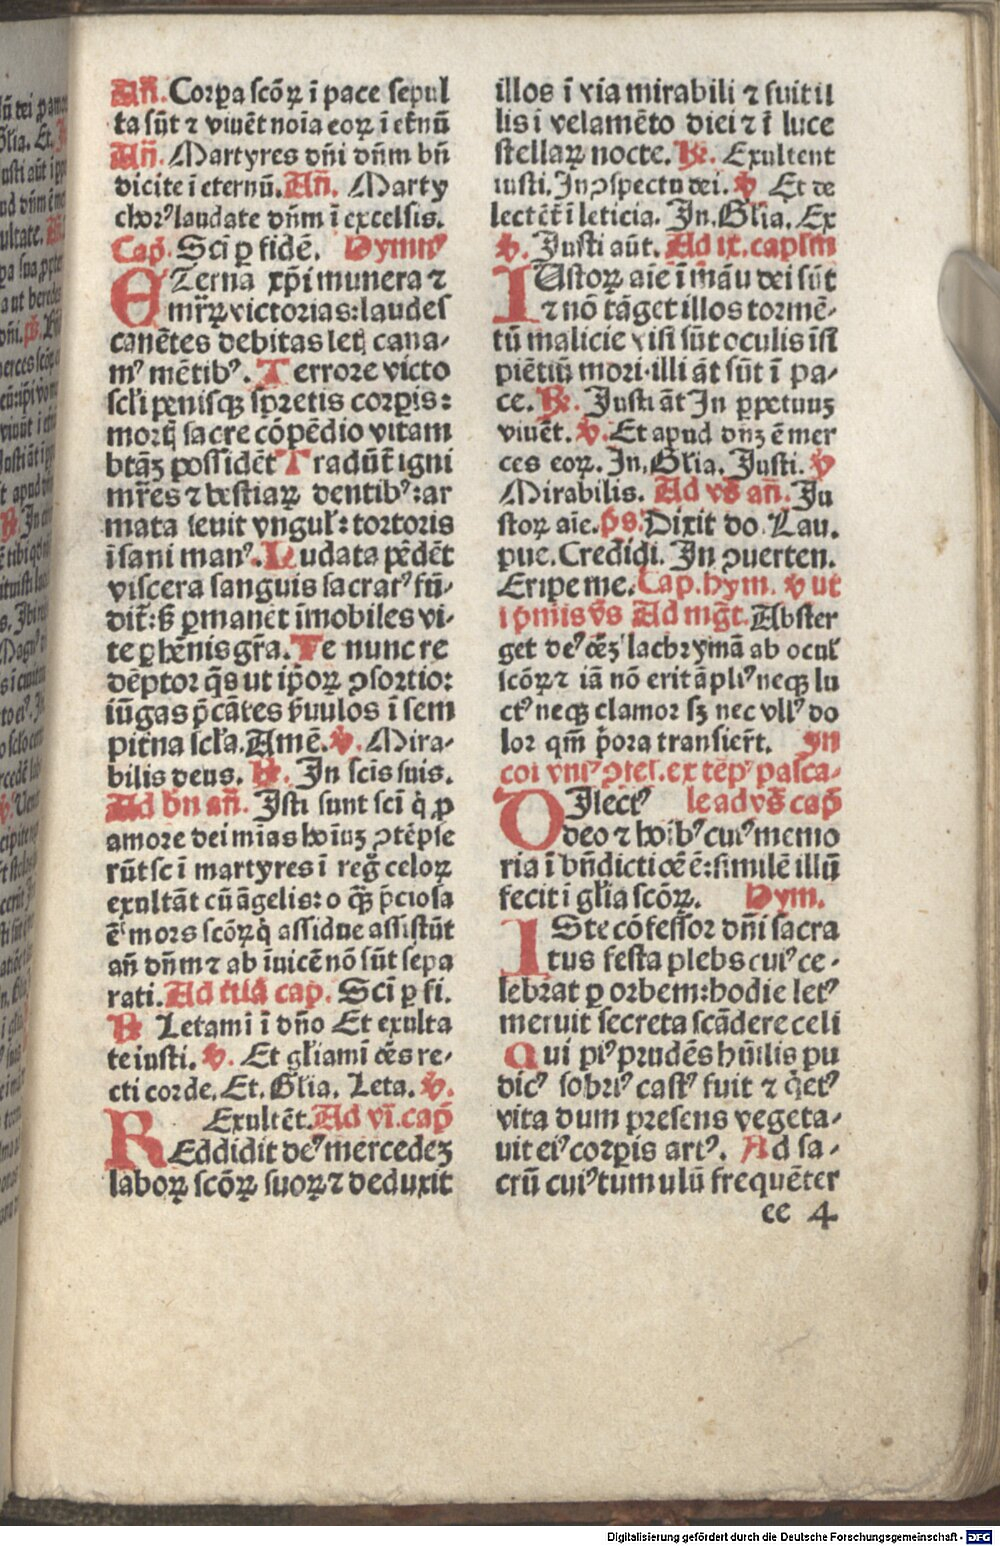 Añ. Corꝑa scõꝝ ĩ pace sepul
ta sũt ⁊ viuẽt noĩa eoꝝ ĩ etnũ
Añ. Martyres dñi dñm bñ
dicite ĩ eternũ. Añ. Marty
chorꝰ laudate dñm ĩ excelsis.
Cap. Sci ꝑ fidẽ. Hymnꝰ
ETerna xp̃i munera ⁊
mr̃ꝝ victorias: laudes
canẽtes debitas letꝭ cana-
mꝰ mẽtibꝰ. Terrore victo
scl̃i penisqꝫ sp̃retis corꝑis:
mortꝭ sacre cõpẽdio vitam
btãꝫ possidẽt Tradũt igni
mr̃es ⁊ bestiaꝝ dentibꝰ: ar
mata seuit vngul̃: tortoris
ĩsani manꝰ. Nudata pẽdẽt
viscera sanguis sacratꝰ fũ-
dit̃: sꝫ ꝑmanẽt ĩmobiles vi-
te ꝑhẽnis gr̃a. Te nunc re
dẽptor q̃s ut ip̃oꝝ ꝯsortio:
iũgas p̃cãtes ẜuulos ĩ sem
pitna scl̃a. Amẽ. ℣. Mira-
bilis deus. ℟. In scĩs suis.
Ad bñ añ. Isti sunt scĩ q̇ ꝓ
amore dei mĩas hoĩuꝫ ꝯtẽpse
rũt scĩ martyres ĩ reg̃ celoꝝ
exultãt cũ ãgelis: o q̃ꝫ p̃ciosa
ẽ mors scõꝝ q̇ assidue assistũt
añ dñm ⁊ ab ĩuicẽ nõ sũt sepa
rati. Ad t̃tiã cap. Scĩ ꝑ fi.
℟ Letami ĩ dño Et exulta
te iusti. ℣. Et gl̃iami õẽs re-
cti corde. Et. Gl̃ia. Leta. ℣.
Exultẽt. Ad vĩ. cap̃
REddidit deꝰ mercedeꝫ
laboꝝ scõꝝ suoꝝ ⁊ deduxit
illos ĩ via mirabili ⁊ fuit il
lis ĩ velamẽto diei ⁊ ĩ luce
stellaꝝ nocte. ℟. Exultent
iusti. In ꝯspectu dei. ℣ Et de
lectẽt̃ ĩ leticia. In. Gl̃ia. Ex
℣. Justi aũt. Ad ix. caplm
IUstoꝝ aĩe ĩ mãu dei sũt
⁊ nõ tãget illos tormẽ-
tũ malicie visi sũt oculis ĩsi
piẽtiũ mori. illi ãt sũt ĩ pa-
ce. ℟. Justi ãt In ꝑpetuuꝫ
viuẽt. ℣. Et apud dñꝫ ẽ mer
ces eoꝝ. In. Gl̃ia. Justi. ℣
Mirabilis. Ad vs̃ añ. Ju
stoꝝ aĩe. p̃s. Dixit do. Lau.
pue. Credidi. In ꝯuerten.
Eripe me. Cap. hym. ℣ ut
ĩ pmiis vs̃ Ad mg̃t. Abster
get deꝰ õẽꝫ lachrymã ab ocul̃
scõꝝ ⁊ iã nõ erit ãpliꝰ neqꝫ lu
ctꝰ neqꝫ clamor sꝫ nec vllꝰ do
lor qm̃ p̃ora transier̃t. In
coĩ vniꝰ ꝯfes. ex tẽpꝰ pasca-
DIlectꝰ le ad vs̃ cap̃
deo ⁊ hoĩbꝰ cuiꝰ memo
ria ĩ bñdictiõe ẽ: similẽ illũ
fecit ĩ gl̃ia scõꝝ. Hym.
ISte cõfessor dñi sacra
tus festa plebs cuiꝰ ce-
lebrat ꝑ orbem: hodie letꝰ
meruit secreta scãdere celi
Qui piꝰ prudẽs hũilis pu
dicꝰ sobriꝰ castꝰ fuit ⁊ q̇etꝰ
vita dum presens vegeta-
uit eiꝰ corꝑis artꝰ. Ad sa-
crũ cuiꝰ tumulũ frequẽter
ee 4
Digitalisierung gefördert durch die Deutsche Forschungsgemeinschaft - DFG